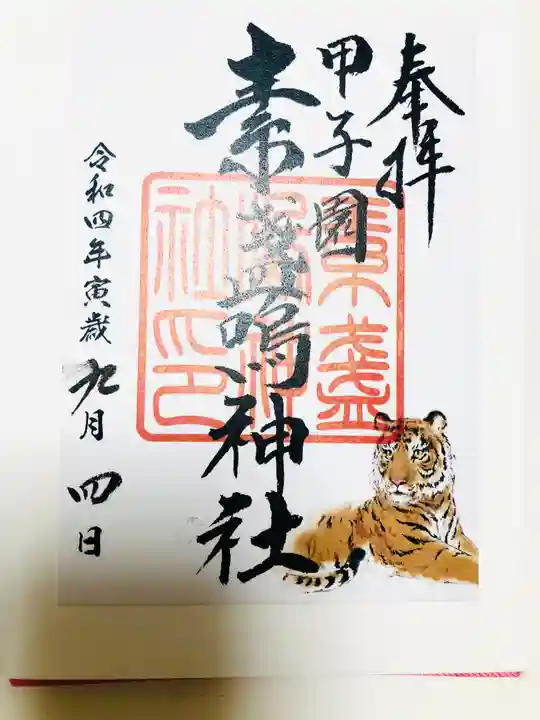 奉拝
甲子園
素盞嗚神社
素盞
嗚神
社印
令和四年寅歳
九月
四日